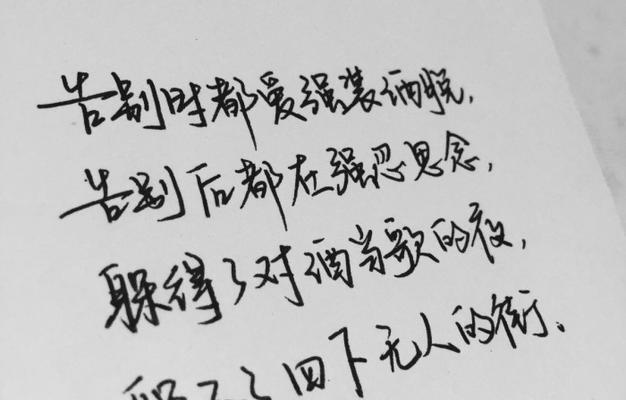 告别时都爱强装洒脱，
告别后都在强忍思念，
躲得了对酒当歌的夜，
躲不了四下无人的街、